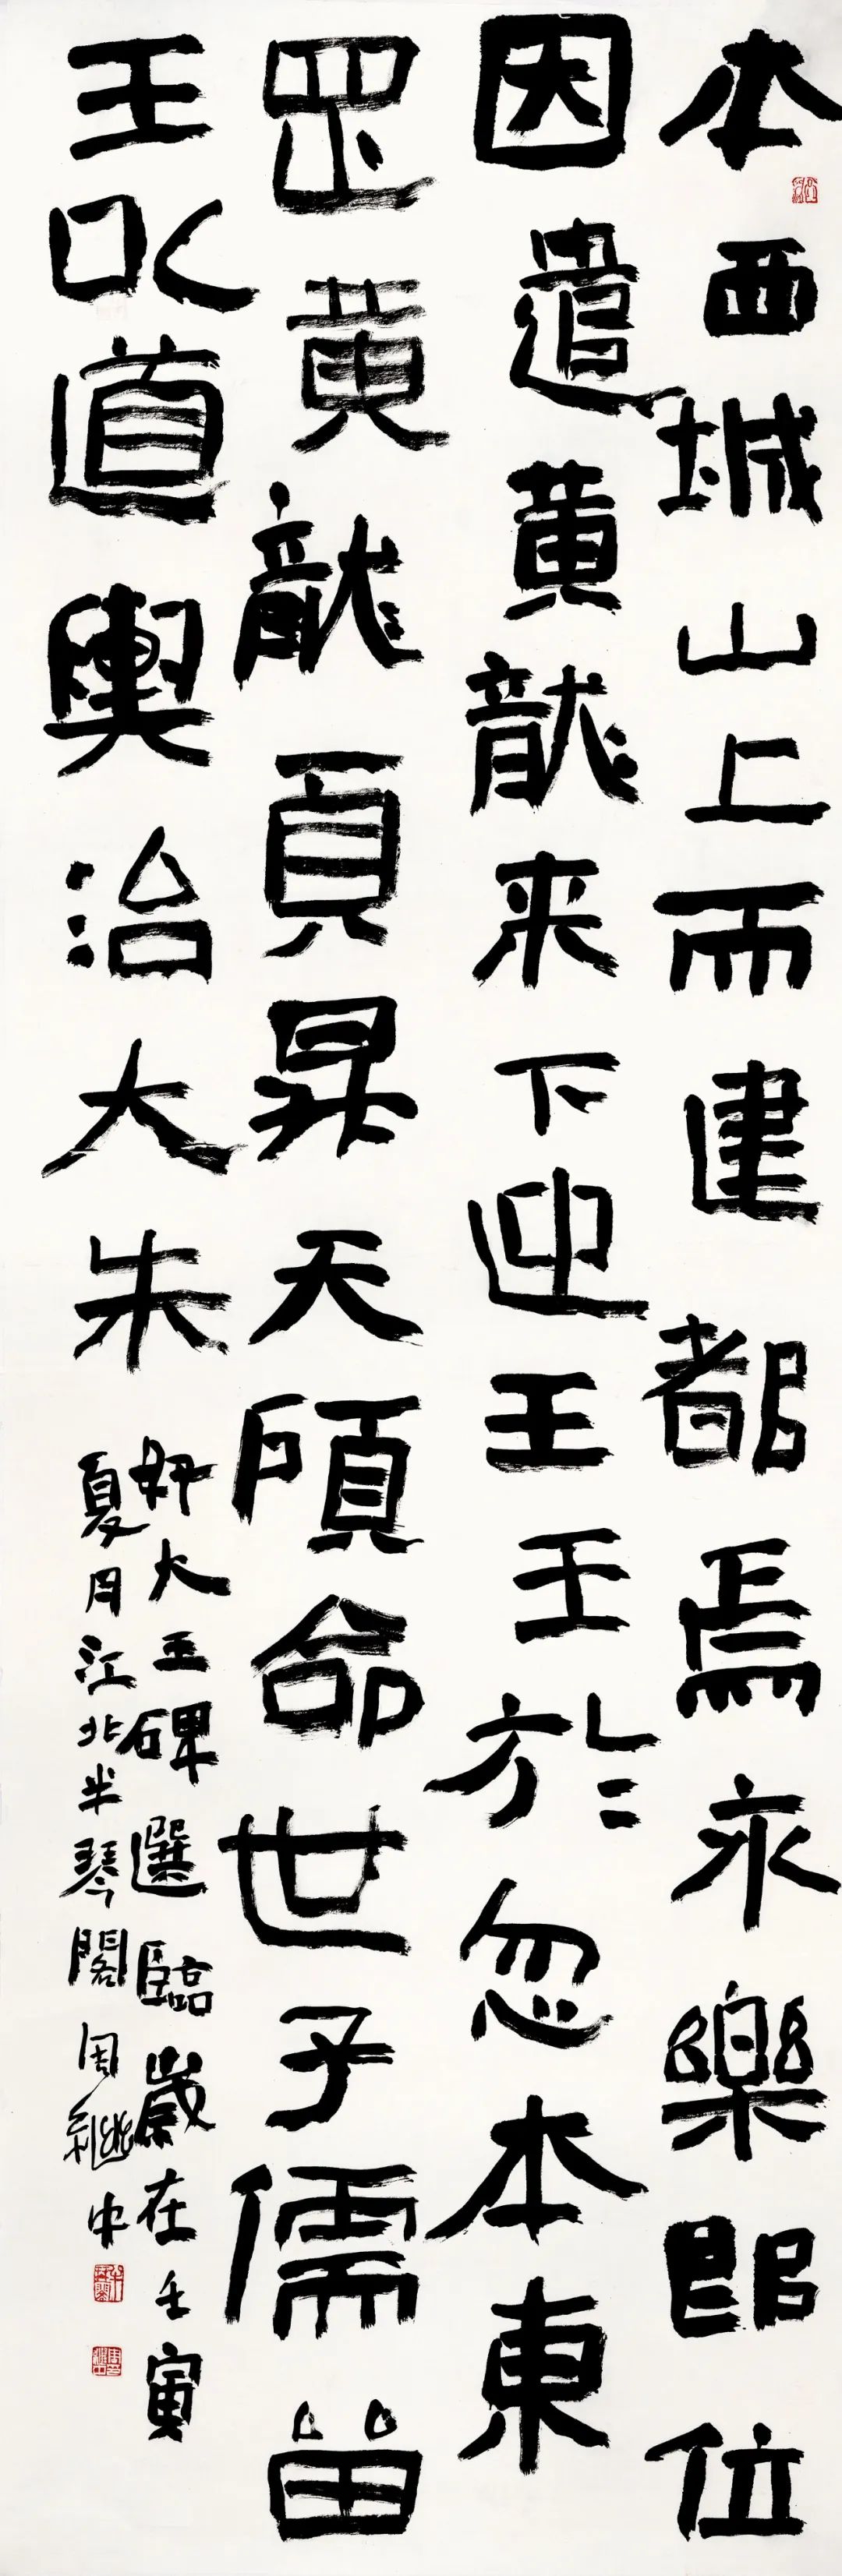 本西城山上而建都焉永樂即位
因遣黄龍来下迎王王於忽本東
罡黄龍頁昇天顧命世子儒留
王以道輿治大朱
好大王碑選臨歲在壬寅
夏月江北半琴閣周繼中